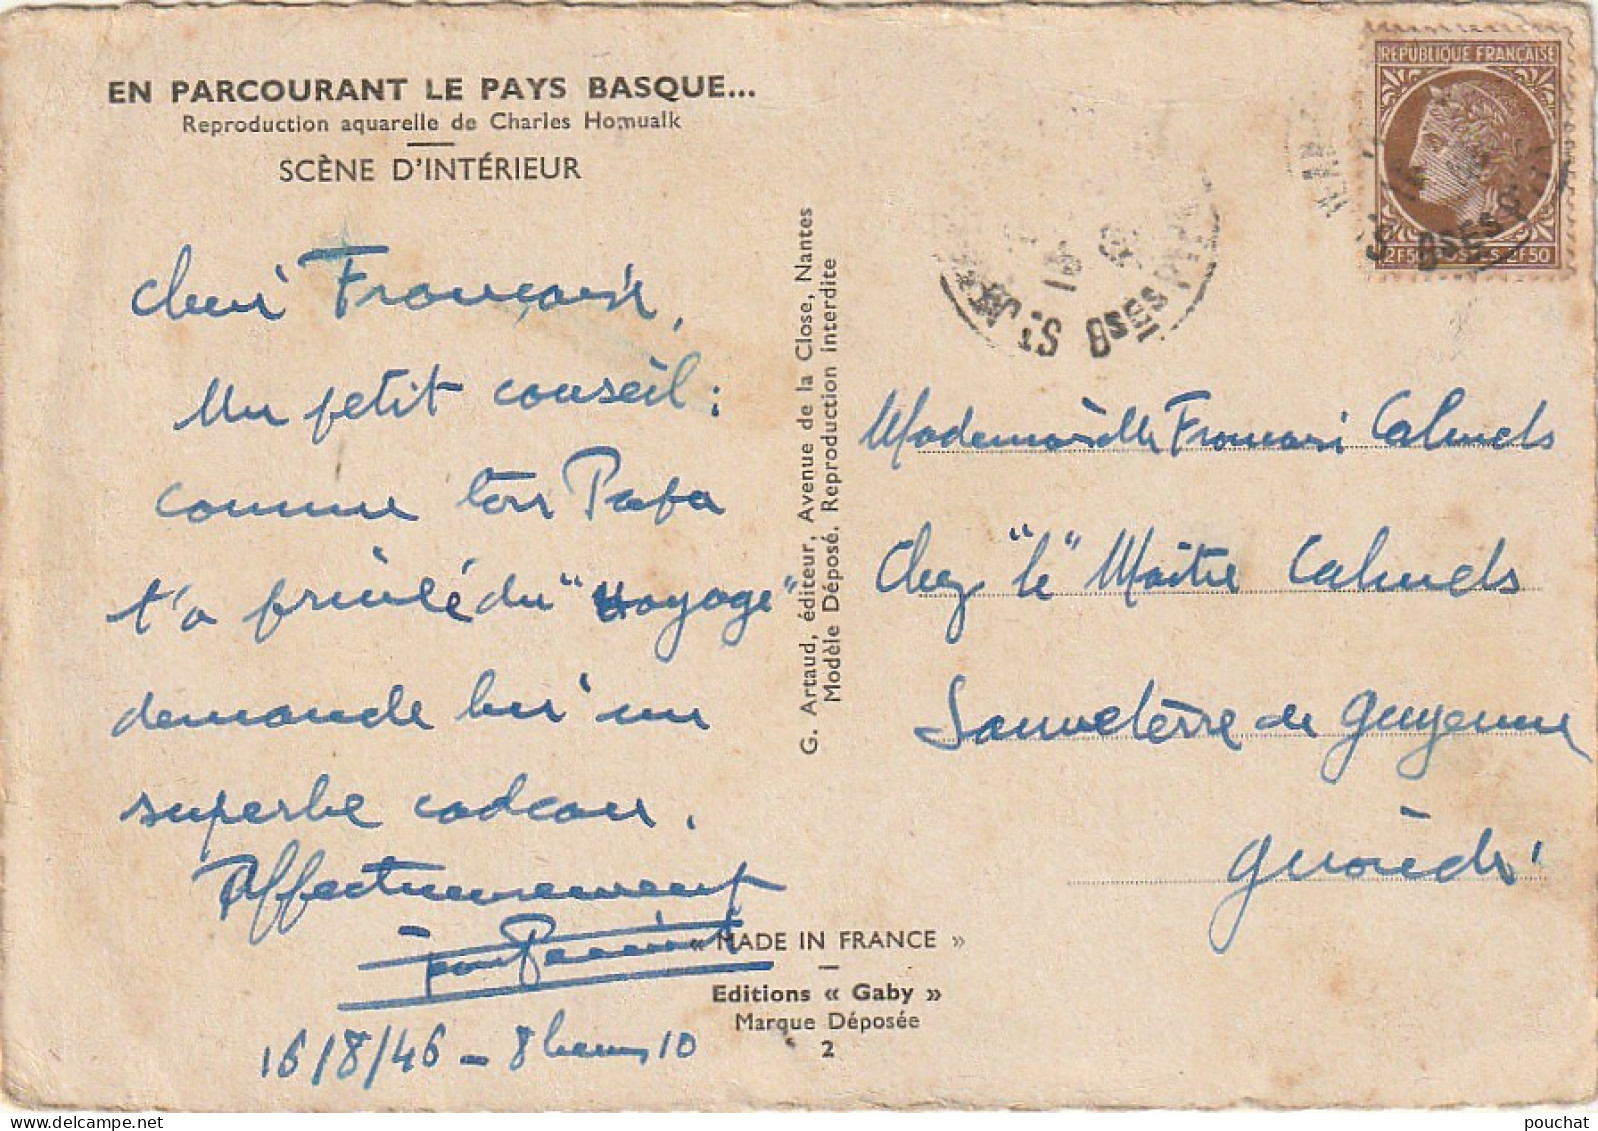 EN PARCOURANT LE PAYS BASQUE...
Reproduction aquarelle de Charles Homualk
SCÈNE D'INTÉRIEUR
Cher Françoise,
Un petit conseil :
comme ton Papa
t'a privée du "Voyage"
demande lui un
superbe cadeau.
Affectueusement
16/8/46 - 8 heures 10
G. Artaud, éditeur, Avenue de la Close, Nantes
Modèle Déposé. Reproduction interdite
« MADE IN FRANCE »
Editions « Gaby »
Marque Déposée
2
REPUBLIQUE FRANÇAISE
2F50 POSTES 2F50
ST BSES PYR
Mademoiselle Françoise
Chez "le" Maître
Sauveterre de Guyenne
Gironde
pouchat